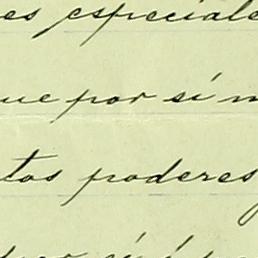 es especiale
ue por sí m
tos poderes